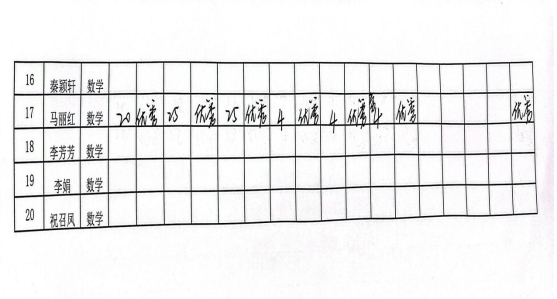 16 秦颖轩 数学
17 马丽红 数学 20 优秀 25 优秀 25 优秀 4 优秀 4 优秀 4 优秀 优秀
18 李芳芳 数学
19 李娟 数学
20 祝召凤 数学